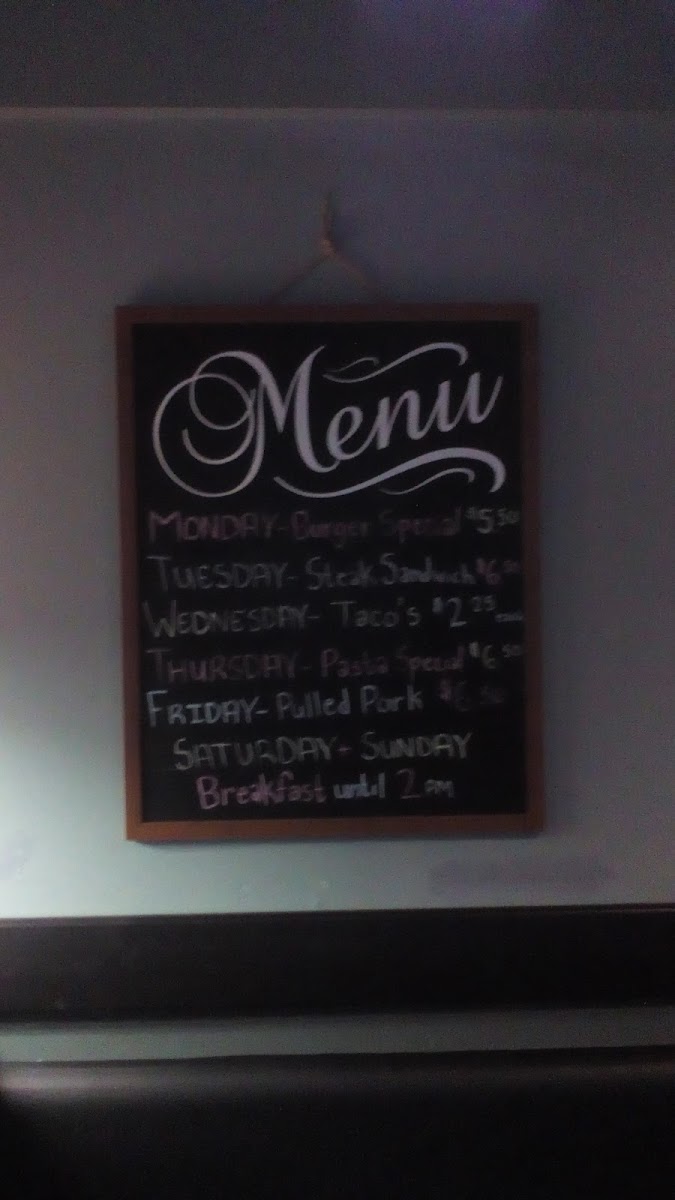 Menu
MONDAY- Burger Special $5.50
TUESDAY- Steak Sandwich $6.50
WEDNESDAY- Taco's $2.25
THURSDAY- Pasta Special $6.50
FRIDAY- Pulled Pork $6.50
SATURDAY- SUNDAY
Breakfast until 2 PM